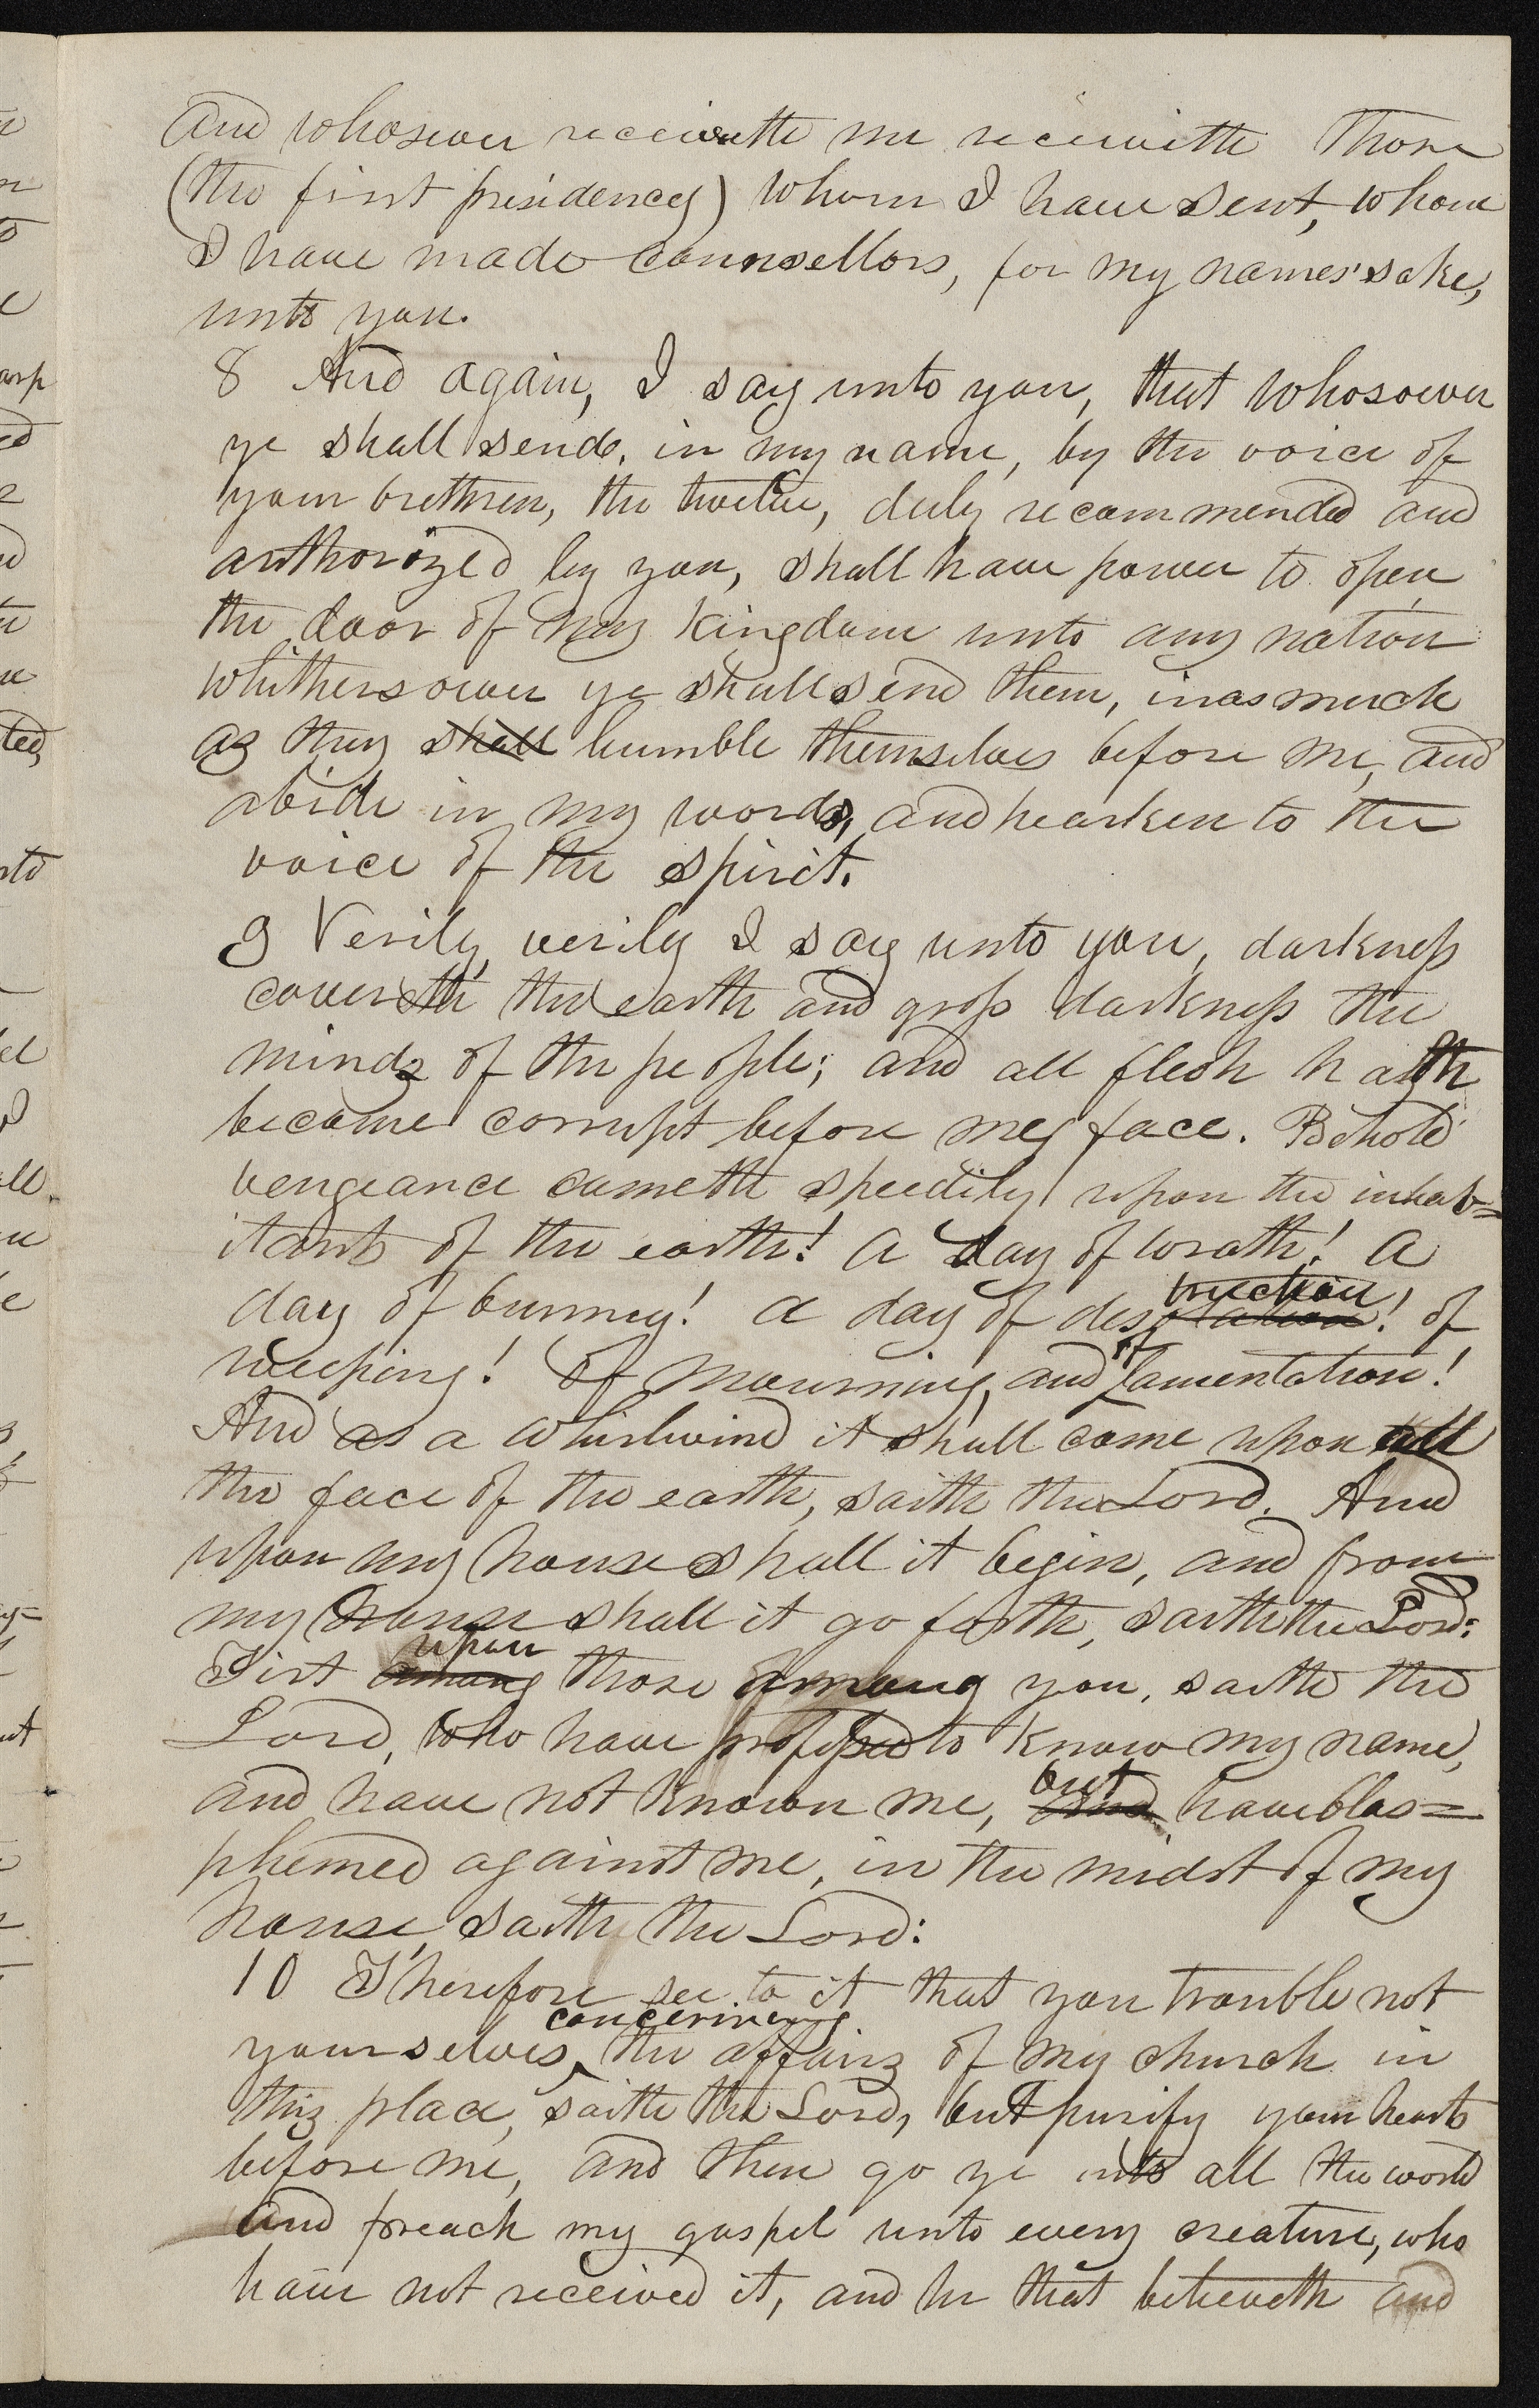 And whosoever receiveth me receiveth those
(the first presidency) whom I have sent, whom
I have made counsellors, for my names' sake,
unto you.
8 And again, I say unto you, that whosoever
ye shall send, in my name, by the voice of
your brethren, the twelve, duly recommended and
authorized by you, shall have power to open
the door of my kingdom unto any nation
whithersoever ye shall send them, inasmuch
as they shall humble themselves before me, and
abide in my words, and hearken to the
voice of the spirit.
9 Verily, verily I say unto you, darkness
covereth the earth and gross darkness the
minds of the people; and all flesh hath
become corrupt before my face. Behold
vengeance cometh speedily upon the inhab=
itants of the earth! A day of wrath! A
day of burning! A day of desolation truction! of
weeping! Of mourning, and of lamentation!
And as a whirlwind it shall come upon all
the face of the earth, saith the Lord. And
upon my house shall it begin, and from
my house shall it go forth, saith the Lord:
First among upon those among you, saith the
Lord, who have professed to know my name,
and have not known me, and but have blas=
phemed against me, in the midst of my
house, saith the Lord:
10 Therefore see to it that you trouble not
yourselves concerning the affairs of my church in
this place, saith the Lord, but purify your hearts
before me, and then go ye into all the world
and preach my gospel unto every creature, who
have not received it, and he that believeth and